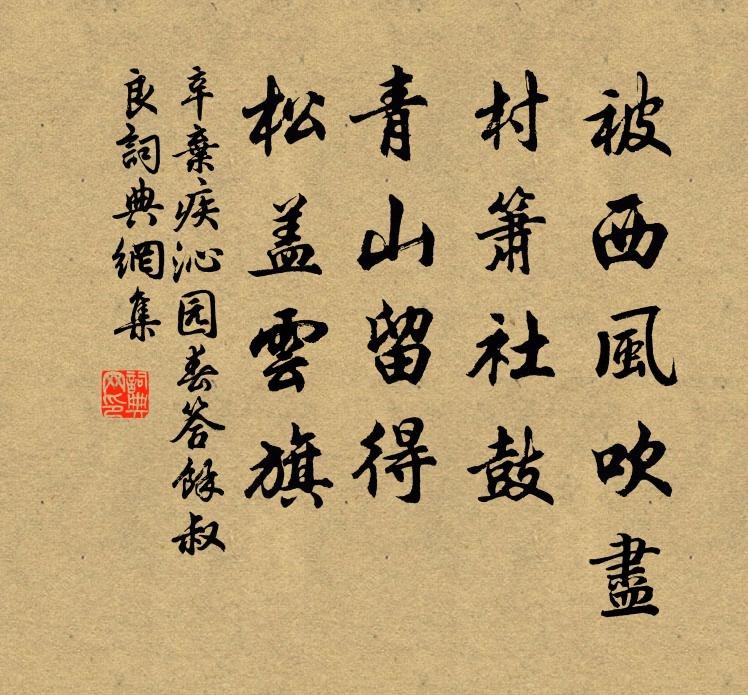 被西風吹盡
村簫社鼓
青山留得
松盖雲旗
辛棄疾沁园春答餘叔
良詞典網集
詞典網印